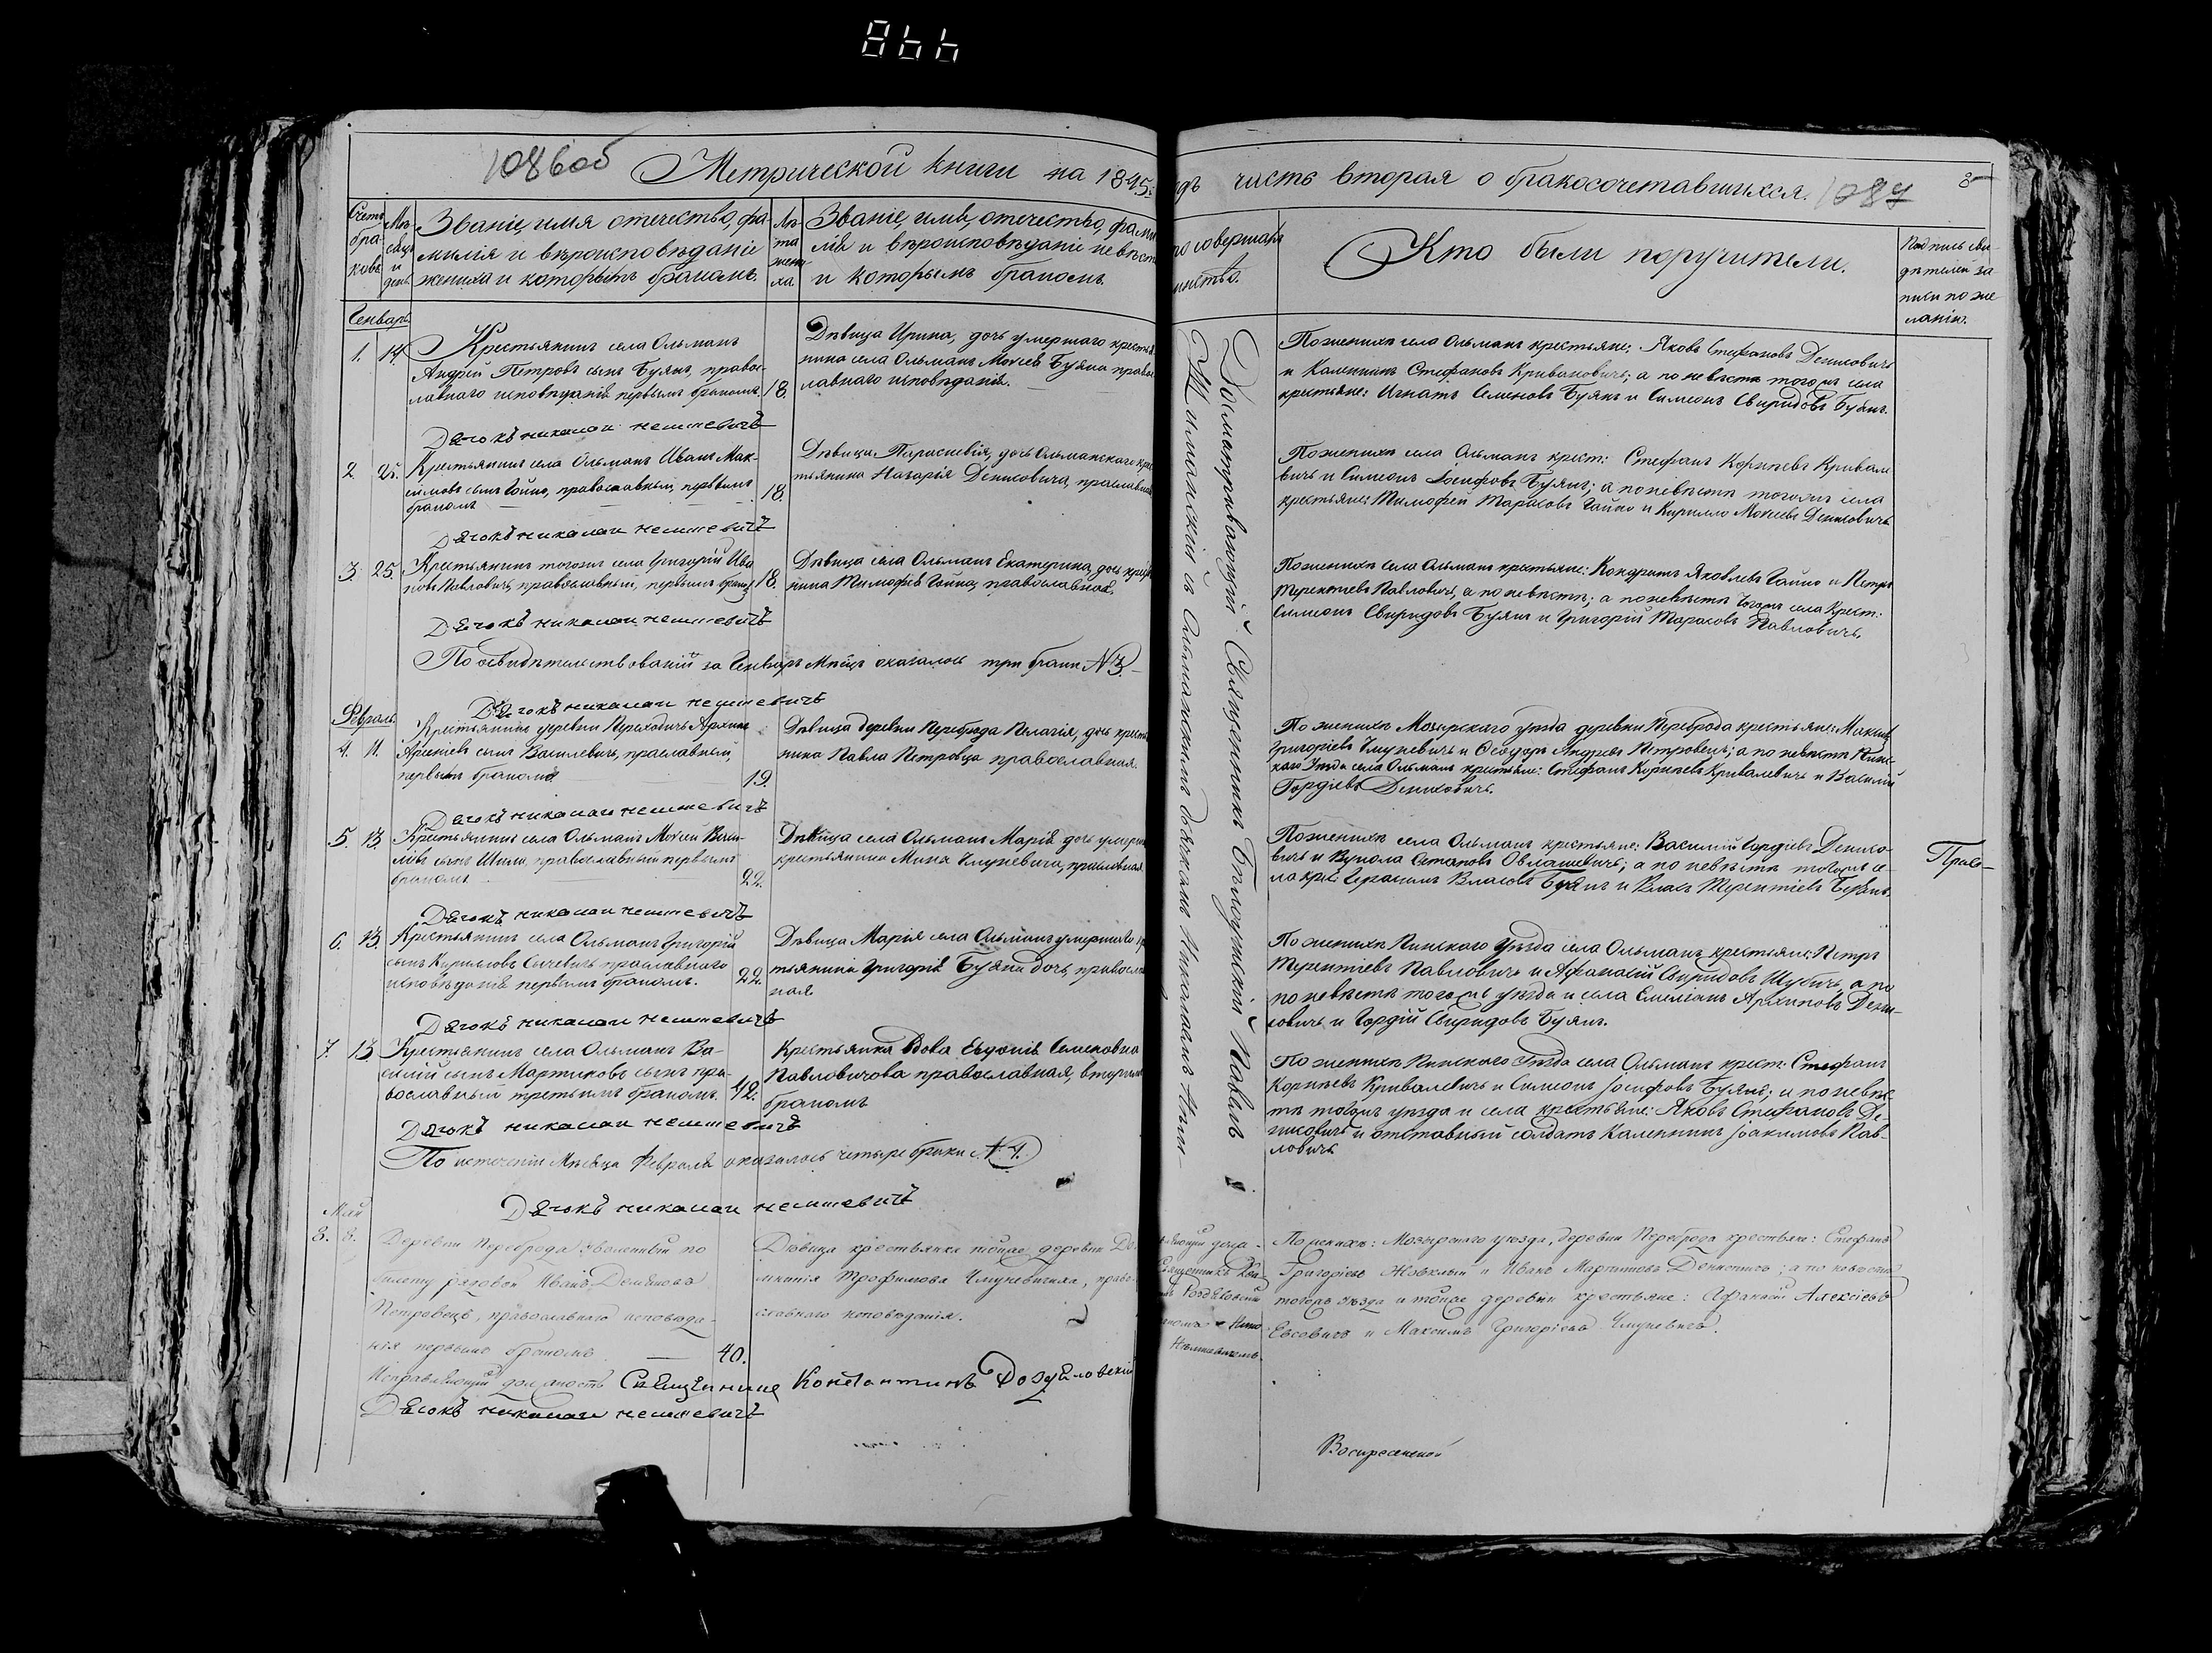 866
1086об
Метрической книги на 1845.
дъ часть вторая о бракосочетавшихся.
1087
8
Счетъ бра- ковъ.
Мѣ- сяцъ и день.
Званіе, имя отечество, фа-
милія и вѣроисповѣданіе
жениха и которымъ бракомъ.
Лѣ- та жени- ха
Званіе, имя, отечество, фами
лія и вѣроисповѣданіе невѣст
и которымъ бракомъ.
то совершалъ
инство.
Кто были поручители.
Подпись сви-
дѣтелей за
писи по же
ланію.
Генварь
1. 14.
Крестьянинъ села Ольманъ
Андрей Петровъ сынъ Буянъ, правос-
лавнаго исповѣданія первымъ бракомъ.
18.
Дѣвица Ирина, дочь умершаго крестья
нина села Ольманъ Моисея Буяна право
лавнаго исповѣданія.
По женихѣ села Ольманъ крестьяне: Яковъ Стефановъ Денисовичъ
и Каленникъ Стефановъ Кривалевичъ; а по невѣстѣ тогожъ села
крестьяне: Игнатъ Семеновъ Буянъ и Симеонъ Свиридовъ Буянъ.
Дячокъ николаи немшевичъ
2. 25.
Крестьянинъ села Ольманъ Иванъ Мак-
симовъ сынъ Гайно, православный, первымъ
бракомъ
18.
Дѣвица Параскевія, дочь Ольманскаго крес
тьянина Назарія Денисовича, православна
По женихѣ села Ольманъ крест: Стефанъ Корніевъ Кривале
вичъ и Симеонъ Іосифовъ Буянъ; а по невѣстѣ тогожъ села
крестьяне: Тимофей Тарасовъ Гайно и Кирилло Моисеевъ Денисовичъ
Дячокъ николаи немшевичъ
3. 25.
Крестьянинъ тогожъ села Григорій Ива
новъ Павловичъ, православный, первымъ брако
18.
Дѣвица села Ольманъ Екатерина дочь крест
нина Тимофея Гайно, православной.
По женихѣ села Ольманъ крестьяне: Кондратъ Яковлевъ Гайно и Петръ
Терентіевъ Павловичъ, а по невѣстѣ; а по невѣстѣ тогожъ села крест:
Симеонъ Свиридовъ Буянъ и Григорій Тарасовъ Павловичъ.
Дячокъ николаи немшевичъ
По освидѣтельствованіи за Генварь Мѣсяцъ оказалось три браки N 3.
Дячокъ николаи немшевичъ
Февраль
4. 11.
Крестьянинъ деревни Архипъ
Арсеніевъ сынъ Василевичъ, православный,
первымъ бракомъ
19.
Дѣвица деревни Переброда Пелагія, дочь крест
нина Павла Петровца православная.
По женихѣ Мозырскаго уѣзда деревни Переброда крестьяне: Максимъ
Григоріевъ Чмуневичъ и Ѳеодоръ Андреевъ Петровецъ; а по невѣстѣ Пинс-
каго Уѣзда села Ольманъ крестьяне: Стефанъ Корніевъ Кривалевичъ и Василій
Гордіевъ Денисовичъ.
Дячокъ николаи немшевичъ
5. 13.
Крестьянинъ села Ольманъ Моисей
сынъ православный первымъ
бракомъ
22.
Дѣвица села Ольманъ Марія дочь умерша
крестьянина Мина Чмуневича, православная
По женихѣ села Ольманъ крестьяне: Василій Гордіевъ Денисо-
вичъ и Степановъ а по невѣстѣ тогожъ се-
ла крес: Герасимъ Власовъ Буянъ и Власъ Терентіевъ Буянъ.
Прис-
Дячокъ николаи немшевичъ
6. 13.
Крестьянинъ села Ольманъ Григорій
сынъ Кирилловъ православнаго
исповѣданія первымъ бракомъ.
22.
Дѣвица Марія села Ольманъ умершаго кре
тьянина Григорія Буяна дочь, правосла
ная
По женихѣ Пинскаго Уѣзда села Ольманъ крестьяне: Петръ
Терентіевъ Павловичъ и Афанасій Свиридовъ Шубичъ, а по
по невѣстѣ тогожъ уѣзда и села Емеліанъ Архиповъ Дени-
совичъ и Гордій Свиридовъ Буянъ.
Дячокъ николаи немшевичъ
7. 13.
Крестьянинъ села Ольманъ Ва-
силій сынъ Мартиновъ сынъ пра-
вославный третьимъ бракомъ.
42.
Крестьянка вдова Евдокія Семеновна
Павловичова православная, вторымъ
бракомъ
По женихѣ Пинскаго Уѣзда села Ольманъ крест: Стефанъ
Корніевъ Кривалевичъ и Симеонъ Іосифовъ Буянъ; и по невѣс-
тѣ тогожъ уѣзда и села крестьяне: Яковъ Стефановъ Де-
нисовичъ и отставный солдатъ Каленникъ Іоакимовъ Пав-
ловичъ
Дячокъ николаи немшевичъ
По истеченіи Мѣсяца Февраля оказалось четыре браки N. 4.
Дячокъ николаи немшевичъ
Досматривающій Священникъ Павелъ
съ дьячкомъ Николаемъ Нем-
Май
8. 8.
Деревни Переброда уволенный по
билету рядовой Иванъ Демьяновъ
Петровецъ, православнаго исповѣда-
нія первымъ бракомъ
40.
Дѣвица крестьянка тойже деревни До-
мникія Трофимова Чмуневичова, право-
славнаго исповѣданія.
По женихѣ: Мозырскаго уѣзда, деревни Переброда крестьяне: Стефанъ
Григорьевъ и Иванъ Мартиновъ Денисовичъ; а по невѣстѣ
тогожъ уѣзда и тойже деревни крестьяне: Афанасій Алексѣевъ
Евсевичъ и Максимъ Григорьевъ Чмуневичъ.
Исправляющій должность Священника Константинъ
Дячокъ николаи немшевичъ